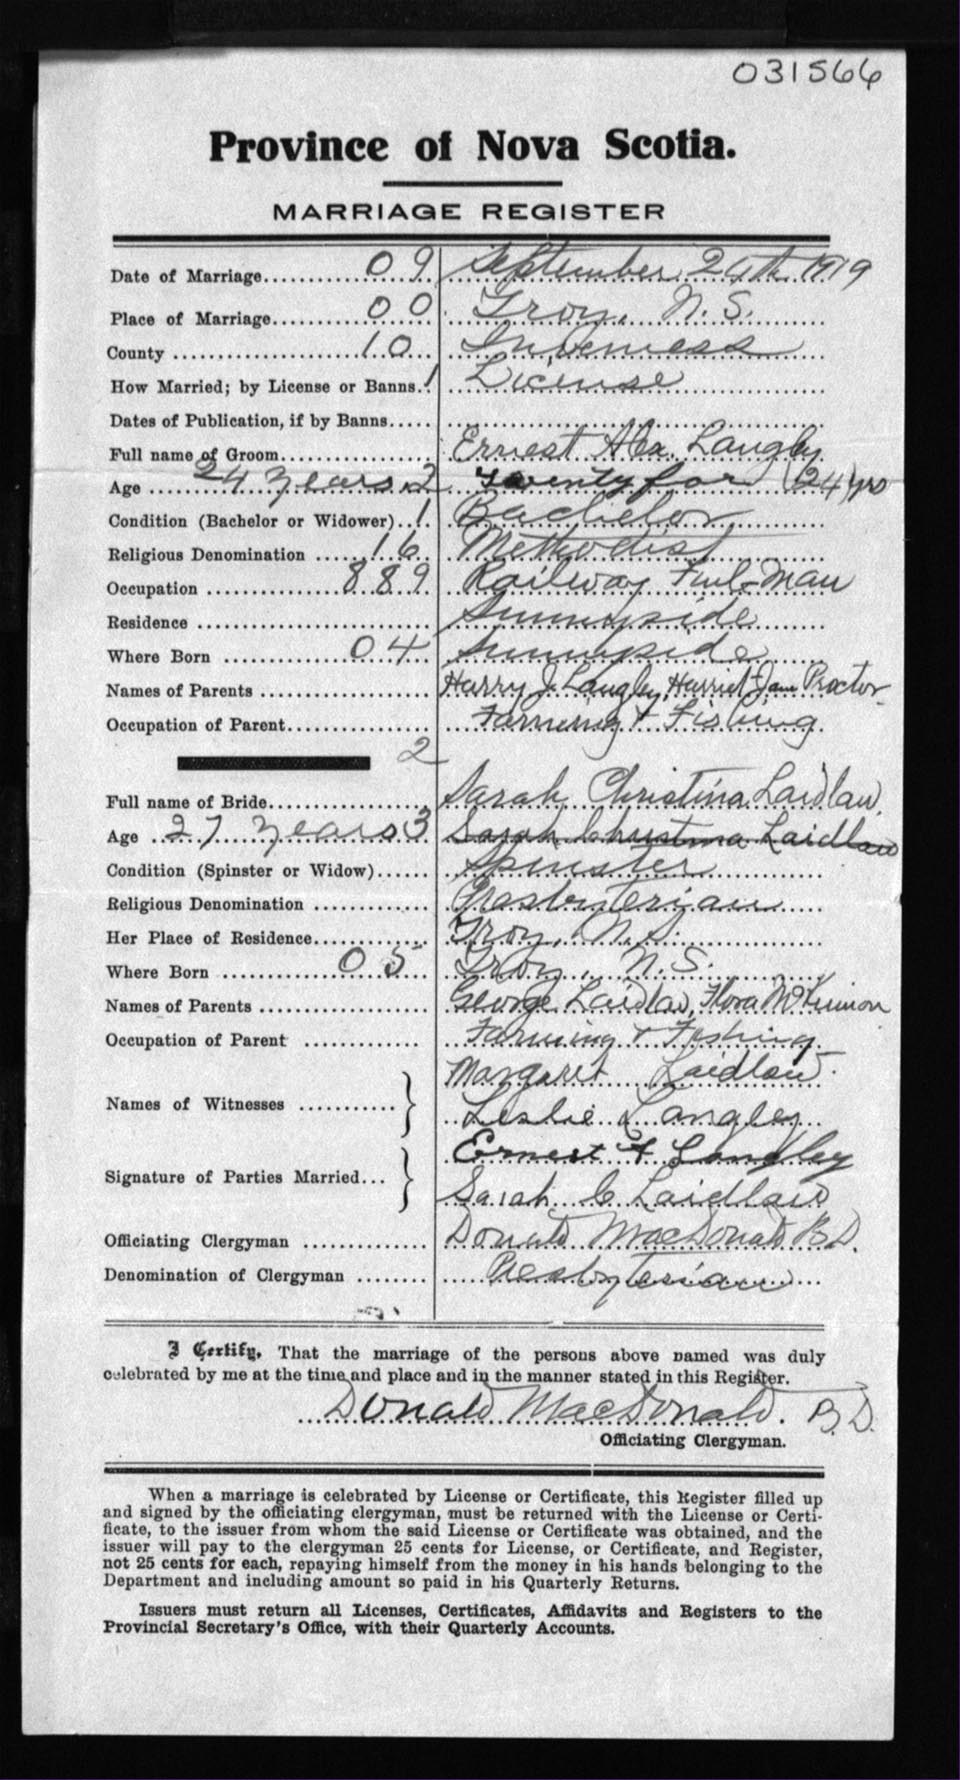 031566
Province of Nova Scotia.
MARRIAGE REGISTER
Date of Marriage 09 September 24th 1919
Place of Marriage 00 Troy, N. S.
County 10 Inverness
How Married; by License or Banns 1 License
Dates of Publication, if by Banns
Full name of Groom Ernest Alex. Langley
Age 24 years 2 Twenty for (24) yrs
Condition (Bachelor or Widower) 1 Bachelor
Religious Denomination 16 Methodist
Occupation 889 Railway Man
Residence Sunnyside
Where Born 04 Sunnyside
Names of Parents Harry J. Langley, Harriet Jane Proctor
Occupation of Parent Farming & Fishing
2
Full name of Bride Sarah Christina Laidlaw
Age 27 years 3 Sarah Christina Laidlaw
Condition (Spinster or Widow) Spinster
Religious Denomination Presbyterian
Her Place of Residence Troy, N. S.
Where Born 05 Troy, N. S.
Names of Parents George Laidlaw, Flora McKinnon
Occupation of Parent Farming & Fishing
Margaret Laidlaw
Names of Witnesses
Leslie Langley
Ernest Langley
Signature of Parties Married
Sarah C Laidlaw
Officiating Clergyman Donald MacDonald B.D.
Denomination of Clergyman Presbyterian
I Certify, That the marriage of the persons above named was duly
celebrated by me at the time and place and in the manner stated in this Register.
Donald MacDonald. B.D.
Officiating Clergyman.
When a marriage is celebrated by License or Certificate, this Register filled up
and signed by the officiating clergyman, must be returned with the License or Certi-
ficate, to the issuer from whom the said License or Certificate was obtained, and the
issuer will pay to the clergyman 25 cents for License, or Certificate, and Register,
not 25 cents for each, repaying himself from the money in his hands belonging to the
Department and including amount so paid in his Quarterly Returns.
Issuers must return all Licenses, Certificates, Affidavits and Registers to the
Provincial Secretary's Office, with their Quarterly Accounts.